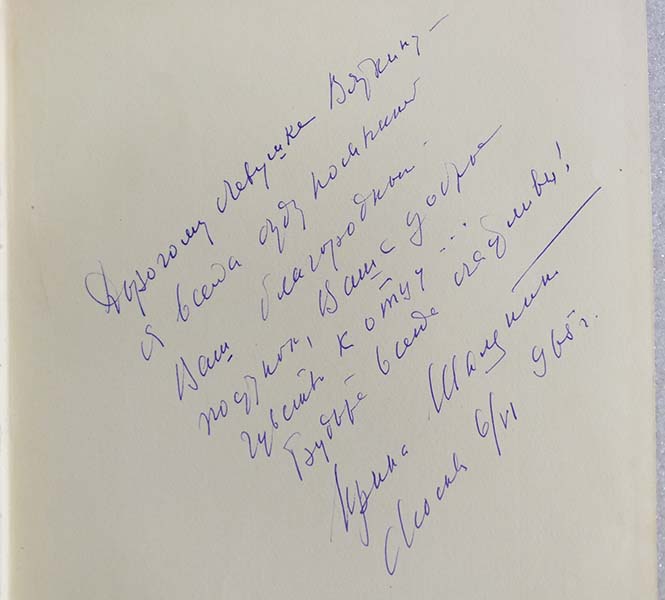 Дорогому Левушке Вяткину –
я всегда буду помнить
Ваш благородный
поступок, Ваши добрые
чувства к отцу ...
Будьте всегда счастливы!
Ирина Шаляпин
Москва 6/VI 965 г.